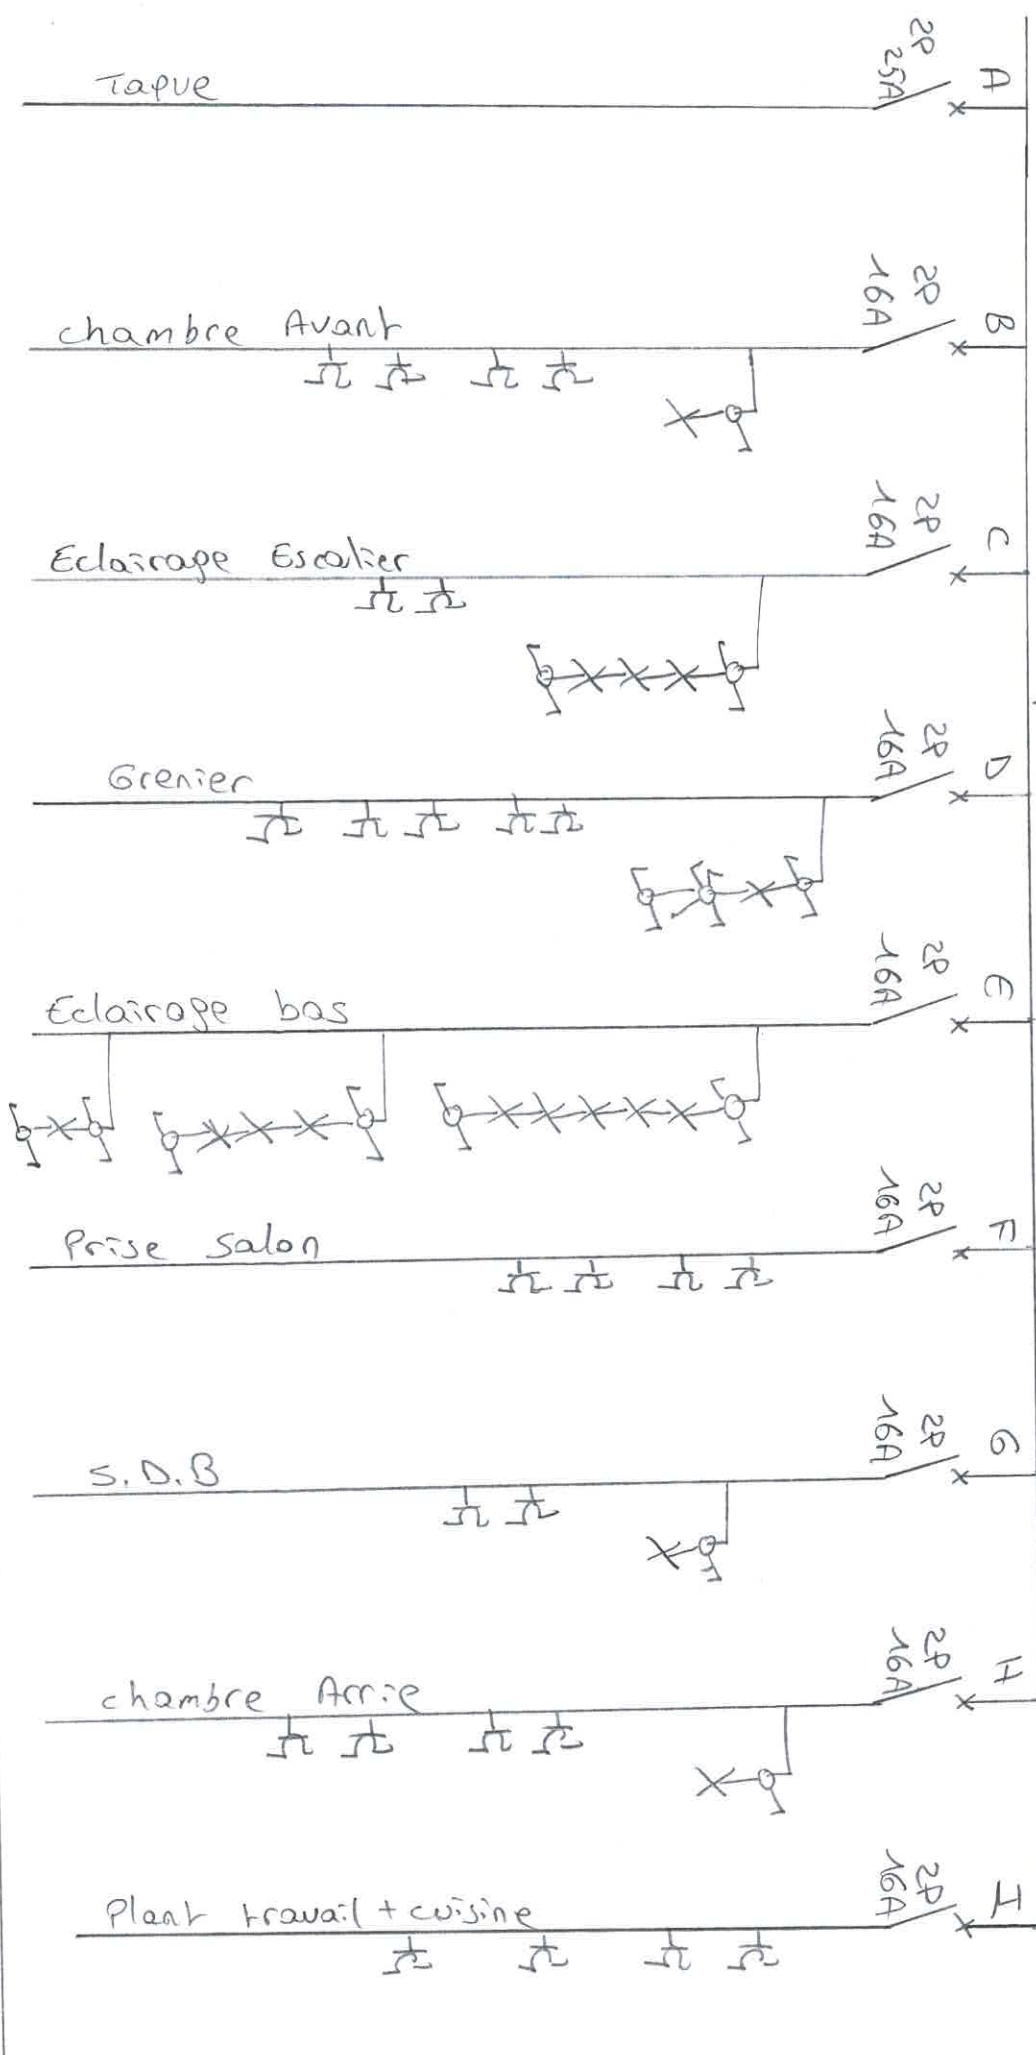 A
2P
25A
Taque
B
2P
16A
chambre Avant
C
2P
16A
Eclairage Escalier
D
2P
16A
Grenier
E
2P
16A
Eclairage bas
F
2P
16A
Prise Salon
G
2P
16A
S.D.B
H
2P
16A
chambre Arrie
H
2P
16A
Plant travail + cuisine